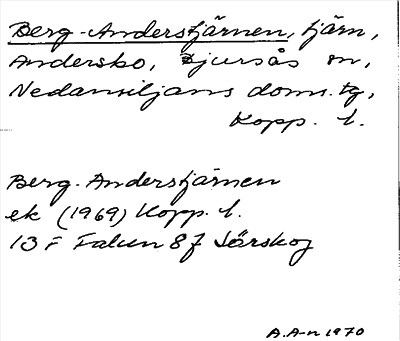 Berg-Anderstjärnen, tjärn,
Andersbo, Djursås sn,
Nedansiljans doms. tg,
Kopp. l.
Berg-Anderstjärnen
ek (1969) Kopp. l.
13 F Falun 8 f Sörskog
A.A-n 1970